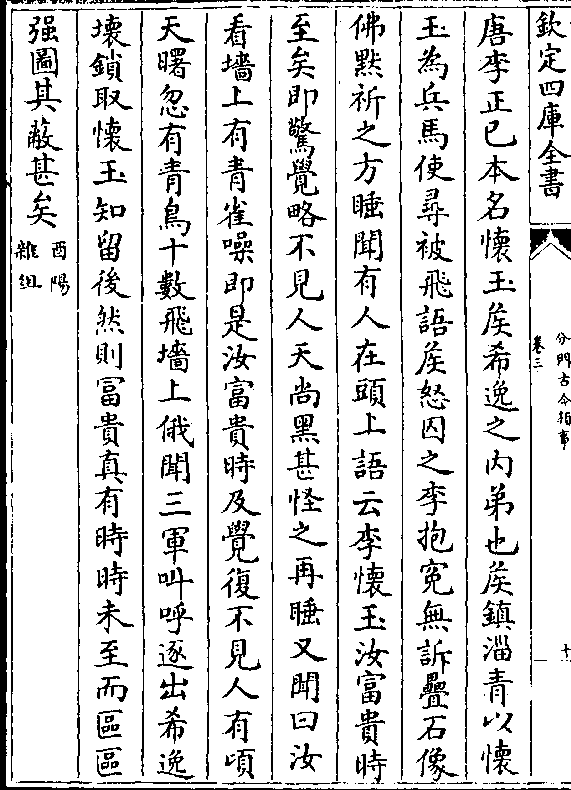 欽定四庫全書
分門古今類事
卷三
十
唐李正已本名懷玉矦希逸之内弟也矦鎮淄青以懷
玉為兵馬使尋被飛語矦怒囚之李抱寃無訴疊石像
佛黙祈之方睡聞有人在頭上語云李懷玉汝富貴時
至矣即驚覺略不見人天尚黒甚怪之再睡又聞曰汝
看墻上有青雀噪即是汝富貴時及覺復不見人有頃
天曙忽有青鳥十數飛墻上俄聞三軍叫呼逐出希逸
壊鎖取懷玉知留後然則富貴真有時時未至而區區
强圖其蔽甚矣酉陽雜俎